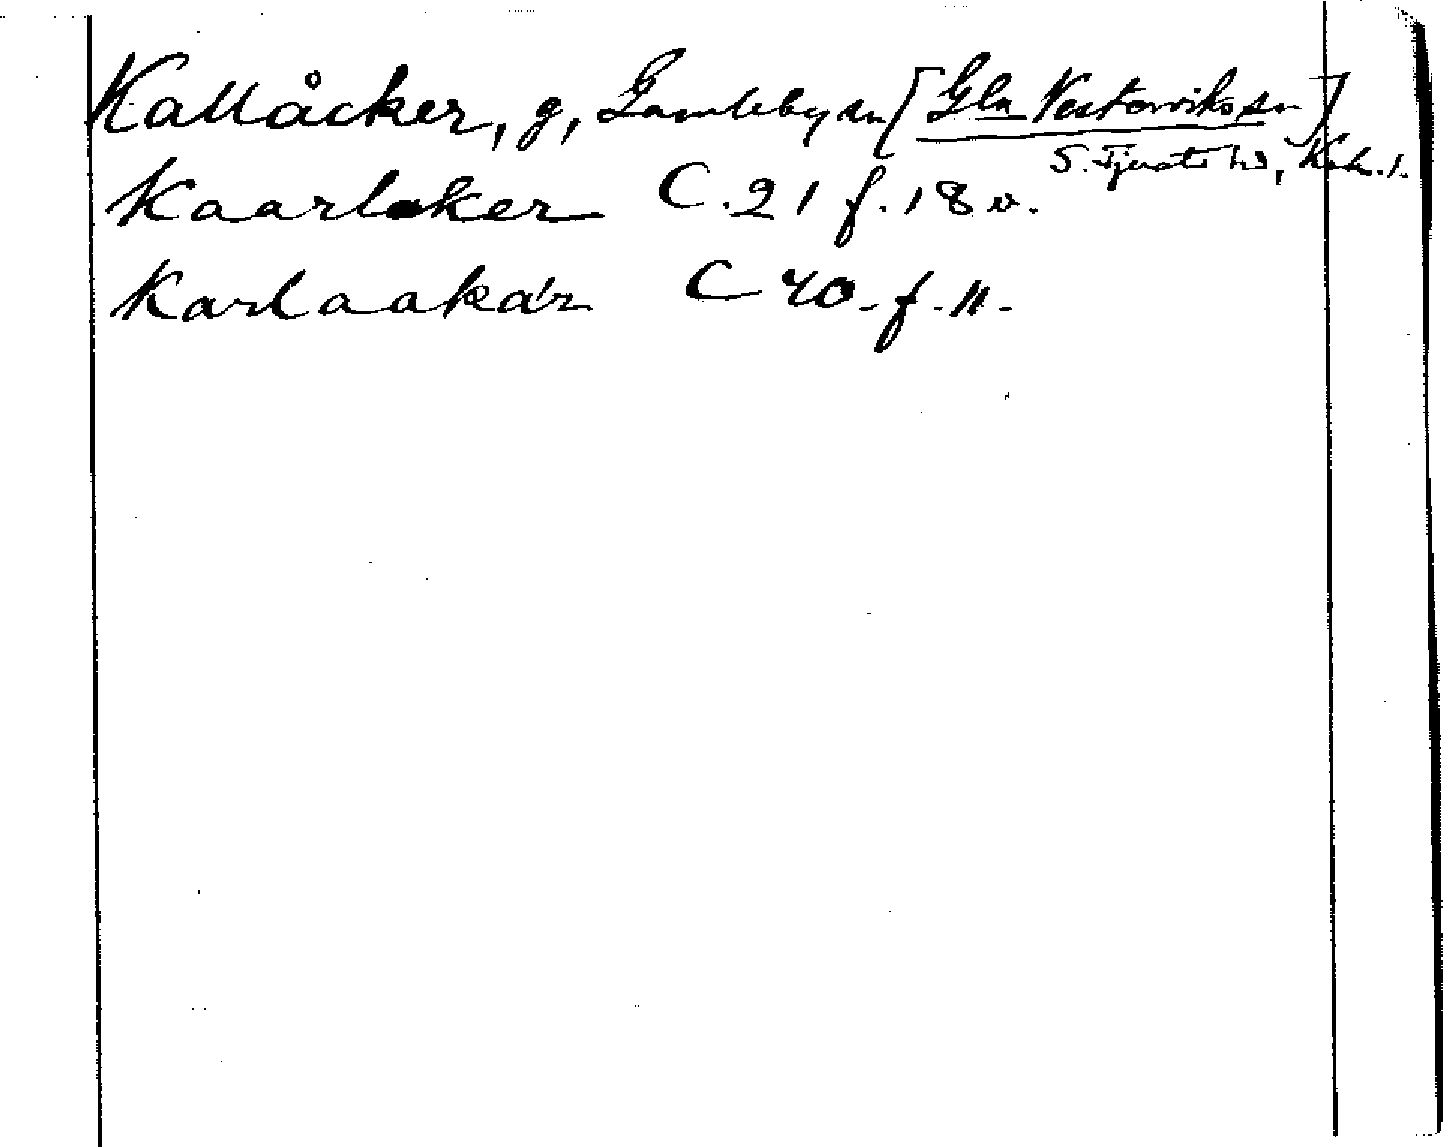 Kallåcker, g, Gamleby sn [Gla Vesterviks sn]
S. Tjust hd, Kalm. l.
Kaarloker C. 21 f. 18 v.
Karlaakär C 40 - f. 11 -